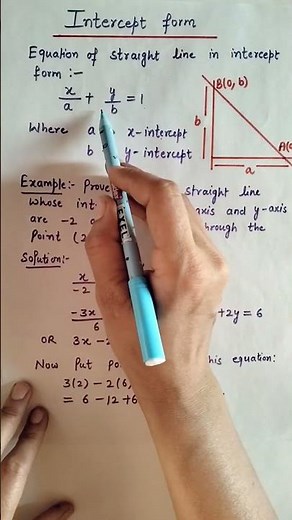 Intercept form
Equation of straight line in intercept
form :-
x/a + y/b = 1
B(0, b)
b
a
Where a x-intercept
b y-intercept
Example:- straight line
whose axis and y-axis
are -2 through the
Point (2
Solution:-
x/-2
-3x/6 + 2y = 6
OR 3x - 2
Now Put this equation:
3(2) - 2(6)
= 6 - 12 + 6